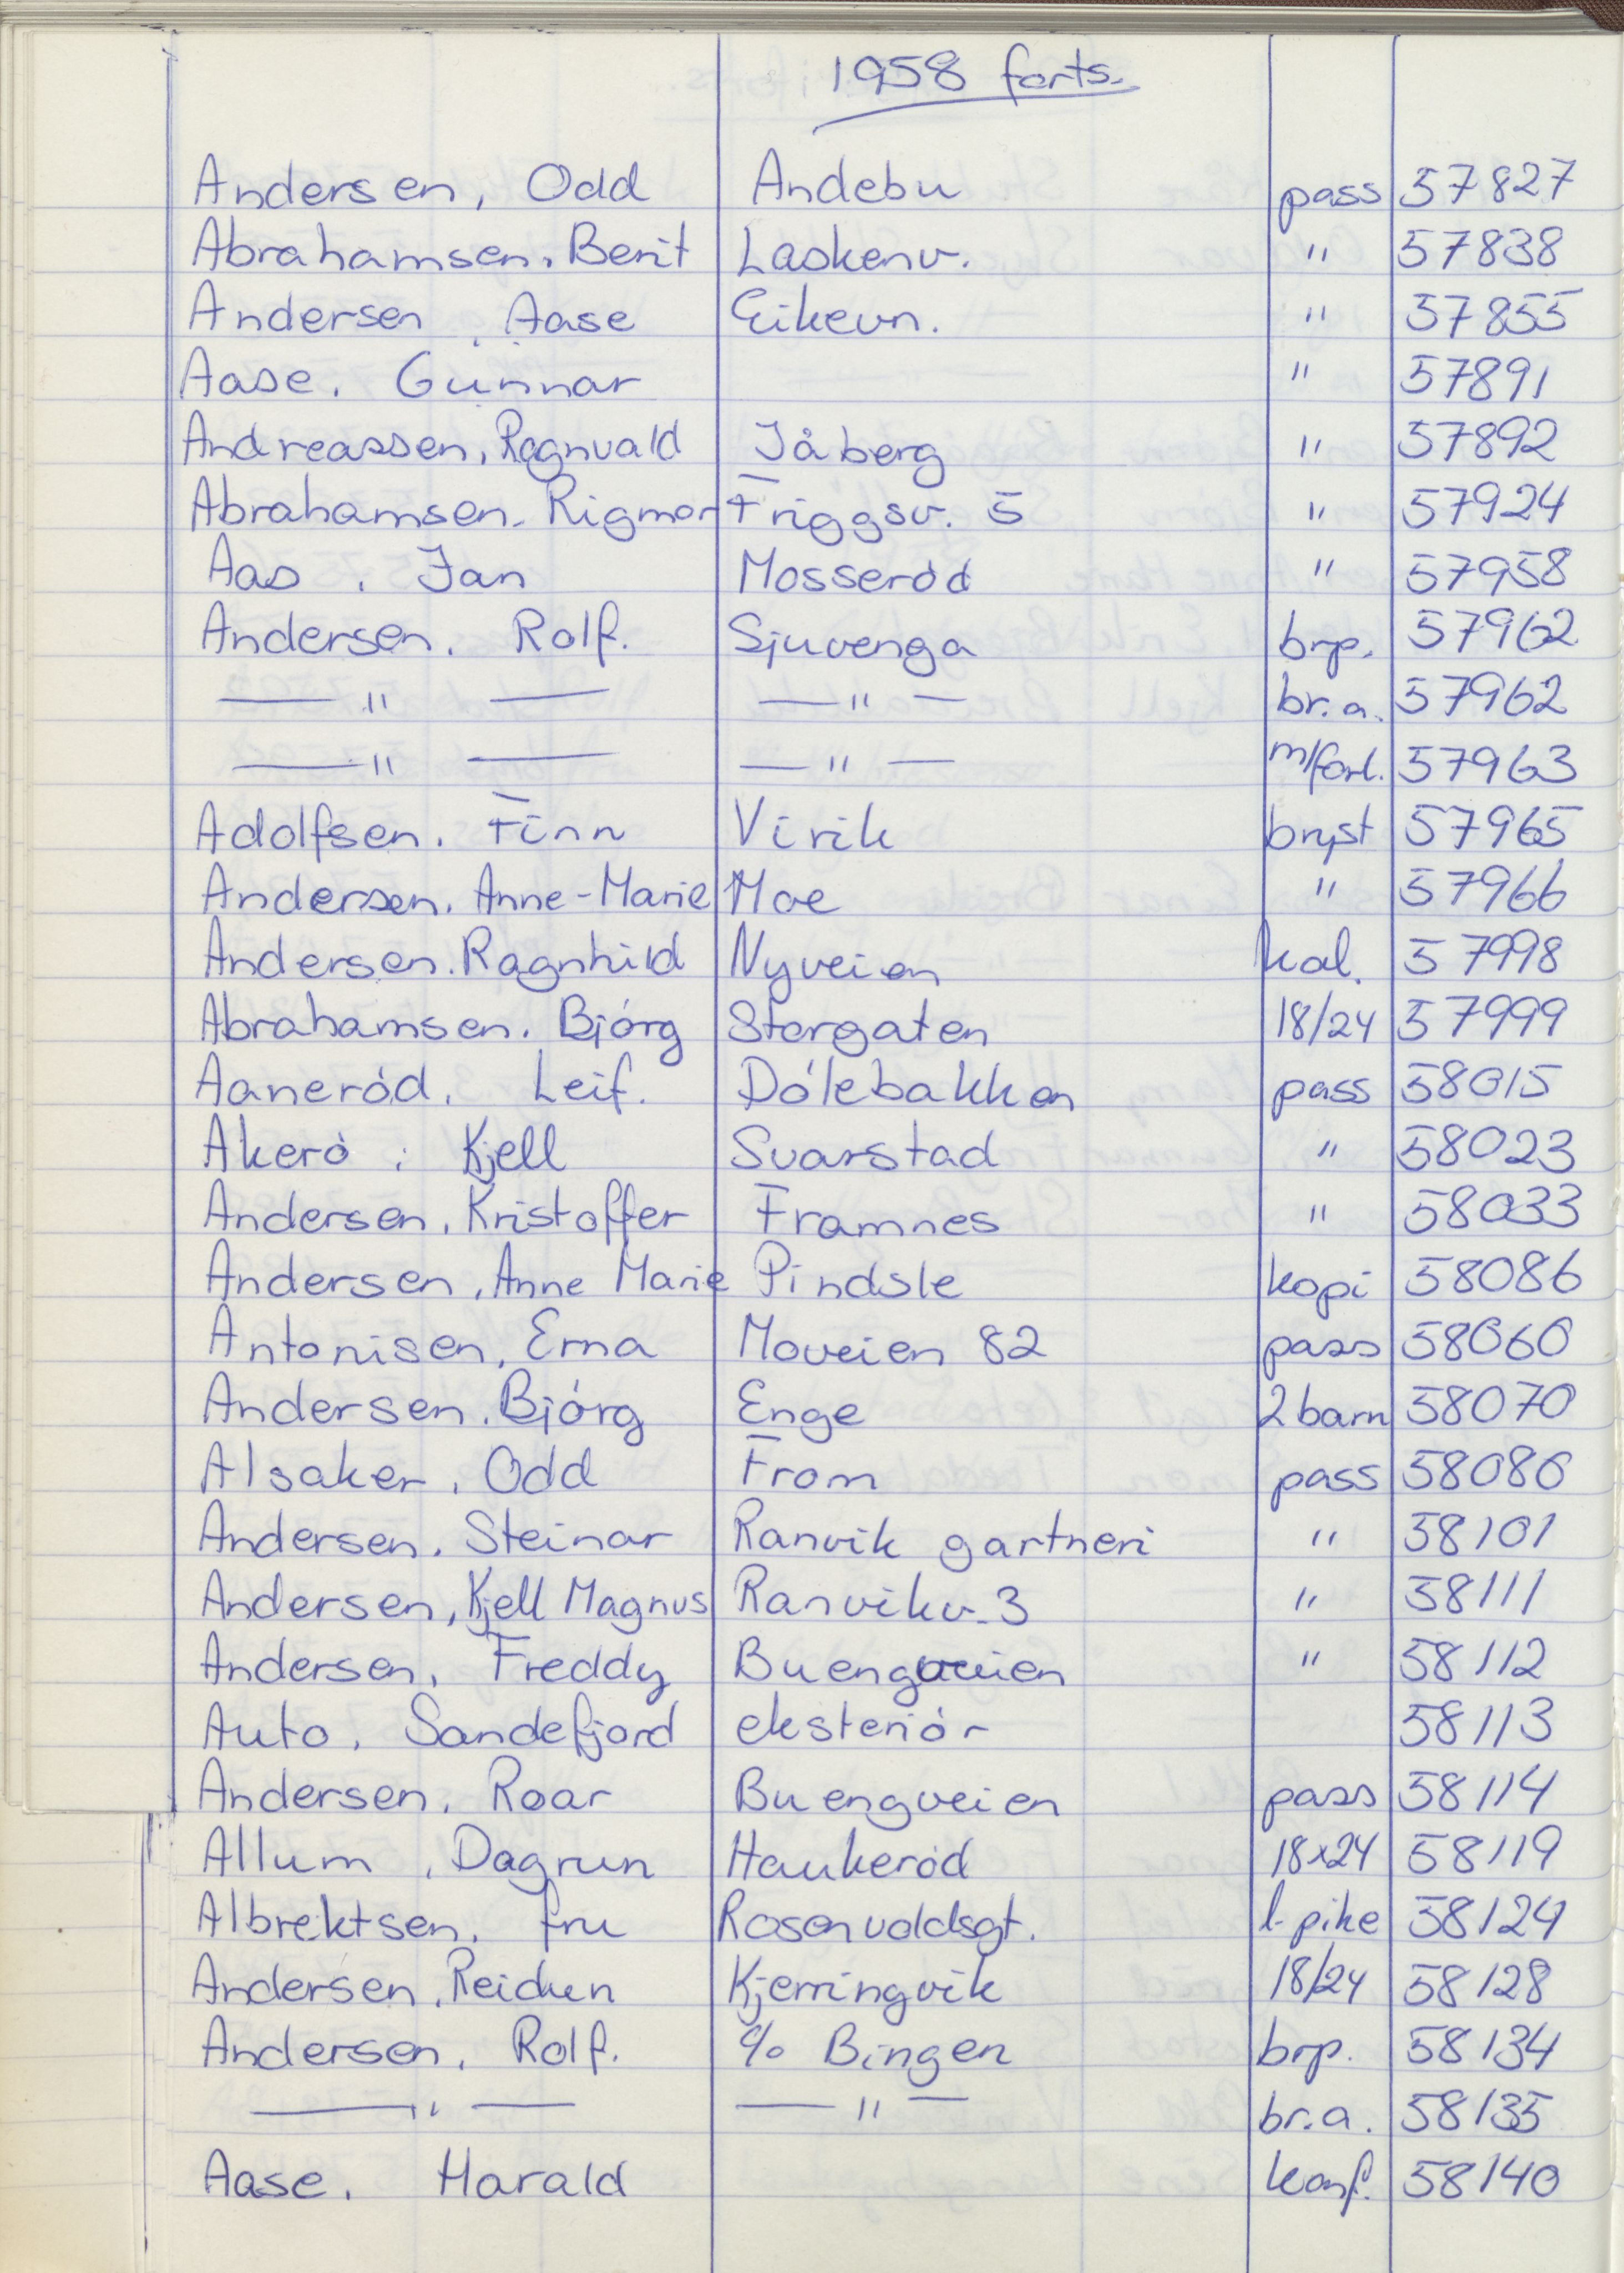 1958 forts.
Andersen, Odd Andebu pass 57827
Abrahamsen, Berit Laskenv. " 57838
Andersen, Aase Eikevn. " 57855
Aase, Gunnar " 57891
Andreassen, Ragnvald Jåberg " 57892
Abrahamsen, Rigmor Friggsv. 5 " 57924
Aas, Jan Mosseród " 57958
Andersen, Rolf. Sjuvenga brp. 57962
— " — — " — br.a. 57962
— " — — " — m/forl. 57963
Adolfsen, Finn Virik bryst 57965
Andersen, Anne-Marie Moe " 57966
Andersen, Ragnhild Nyveien kal. 57998
Abrahamsen, Bjórg Storgaten 18/24 57999
Aaneród, Leif. Dólebakken pass 58015
Akeró, Kjell Svarstad " 58023
Andersen, Kristoffer Framnes " 58033
Andersen, Anne Marie Pindsle kopi 58086
Antonisen, Erna Moveien 82 pass 58060
Andersen, Bjórg Enge 2 barn 58070
Alsaker, Odd From pass 58080
Andersen, Steinar Ranvik gartneri " 58101
Andersen, Kjell Magnus Ranvikv. 3 " 58111
Andersen, Freddy Buengveien " 58112
Auto, Sandefjord eksteriór 58113
Andersen, Roar Buengveien pass 58114
Allum, Dagrun Haukeród 18x24 58119
Albrektsen, fru Rosenvoldsgt. l. pike 58124
Andersen, Reidun Kjerringvik 18/24 58128
Andersen, Rolf. c/o Bingen brp. 58134
— " — — " — br.a. 58135
Aase, Harald konf. 58140